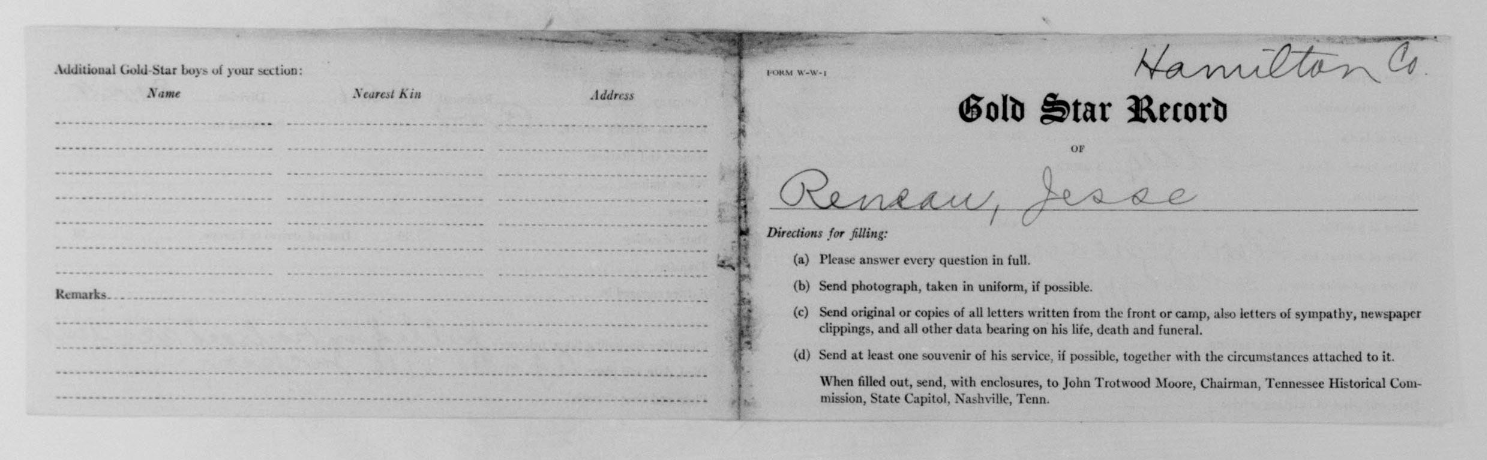 Additional Gold-Star boys of your section:
Name Nearest Kin Address
Remarks
FORM W-W-1
Hamilton Co.
Gold Star Record
OF
Reneau, Jesse
Directions for filling:
(a) Please answer every question in full.
(b) Send photograph, taken in uniform, if possible.
(c) Send original or copies of all letters written from the front or camp, also letters of sympathy, newspaper
clippings, and all other data bearing on his life, death and funeral.
(d) Send at least one souvenir of his service, if possible, together with the circumstances attached to it.
When filled out, send, with enclosures, to John Trotwood Moore, Chairman, Tennessee Historical Com-
mission, State Capitol, Nashville, Tenn.